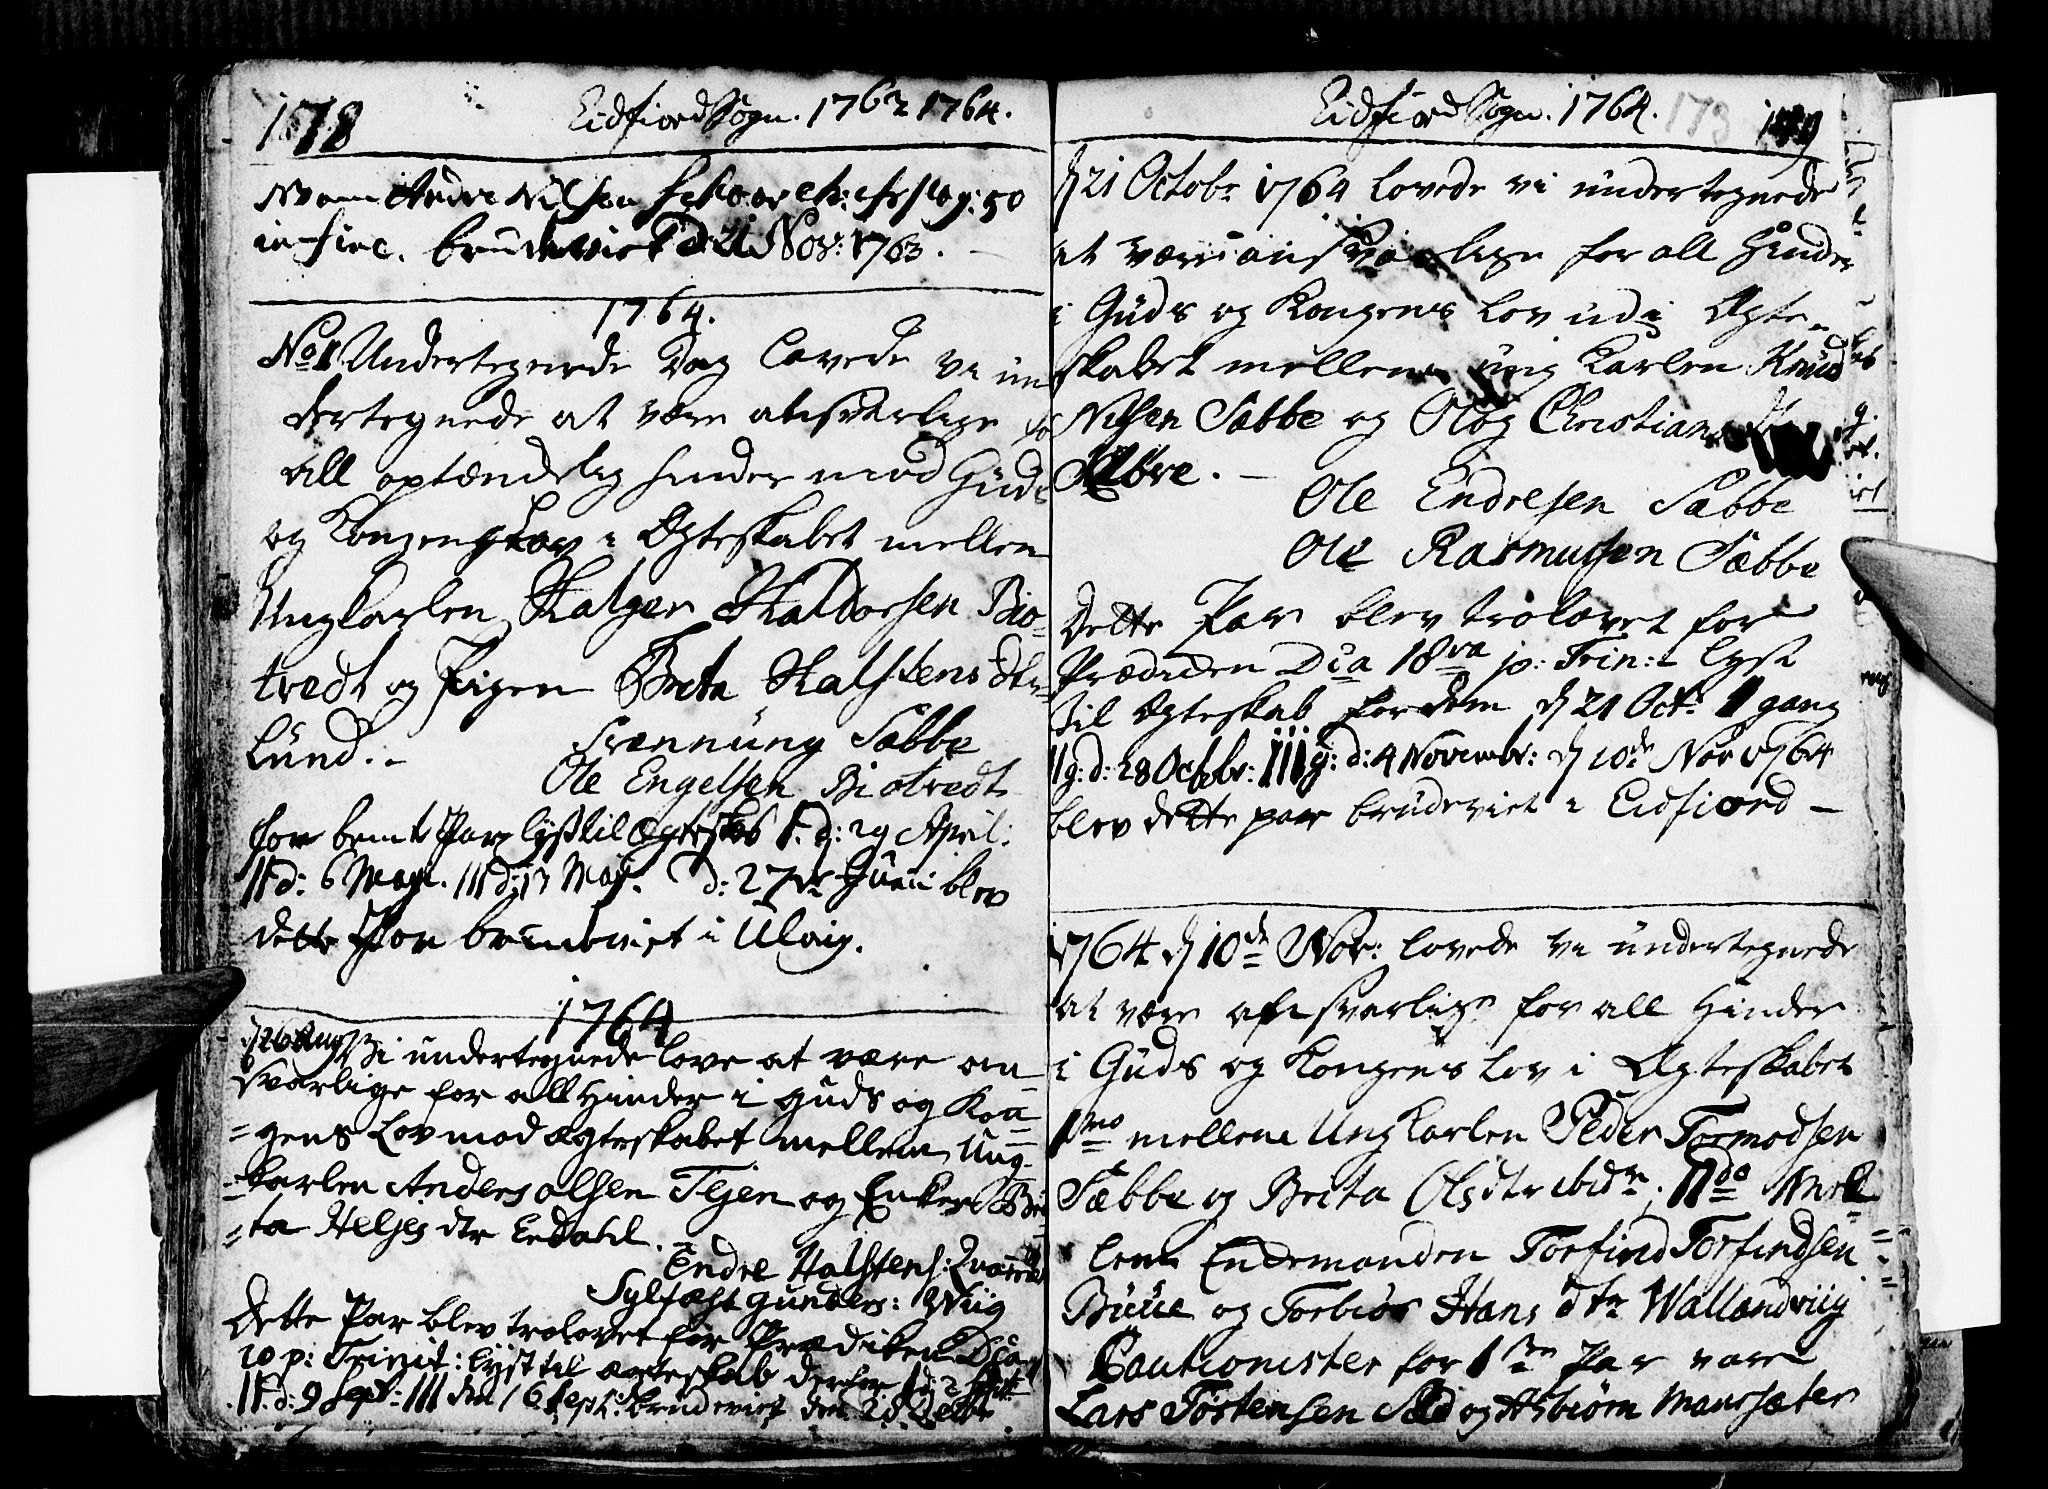 178
Eidfiord Sogn. 1763 1764.
in fine. brudeviet d: 21 Nov: 1763.
1764.
No 1 Undertegnede Dag lovede vi un
dertegnede at være ansvarlige for
all optænckelig hinder mod Guds
og Kongens Lov i Ægteskabet mellem
Ungkarlen Halger Haldorsen Bio-
tvedt og Pigen Breta Halstens dtr
Lund.-
Svennung Sæbbe
Ole Engelsen Biotvedt
for bemte Par lyst til Ægteskab I. d: 29 April:
II d: 6 Maji. III d: 13 Maj. d: 27de Junii blev
dette Par brudeviet i Ulvig.
1764
d 26 Aug Vi undertegnede love at være an
svarlige for all Hinder i Guds og Kon
gens Lov mod ægteskabet mellem Ung-
karlen Anders Olsen Tejen og Enken Bre
ta Helges dtr Lekahl.
Endre Halstens:
Sylfæst Gunders: Wiig
Dette Par blev trolovet for Prædiken D
10 p: Trinit: lyst til ægteskab derfor I d 2 Sept:
II. d: 9 Sept: III den 16 Sept: brudeviet den 28.
Eidfiord Sogn. 1764.
173
179
d 21 Octobr 1764 lovede vi undertegnede
at være ansvarlige for all Hinder
i Guds og Kongens Lov udi Ægte
skabet mellem ung Karlen Knud
Nilsen Sæbbe og Olög Christians
Sæbbe.
Ole Endresen Sæbbe
Ole Rasmussen Sæbbe
Dette Par blev trolovet for
Prædiken Dca 18va p: Trin: lyst
til Ægteskab for dem d 21 Oct: I gang
II g: d: 28 Octbr: III g: d: 4 Novembr: d 10de Nov 1764
blev dette par brudeviet i Eidfiord
1764 d 10de Nov: lovede vi undertegnede
at være ansvarlige for all Hinder
i Guds og Kongens Lov i Ægteskabet
1mo mellem Ungkarlen Peder Tormodsen
Sæbbe og Breta Olsdtr ibidm. IIdo Mel
lem Enckemanden Torfind Torfindsen
Buue og Torbiør Hans dtr Wallandviig
Cautionister for 1ste Par vare
Lars Torstensen Sæd og Asbiørn Maursæter